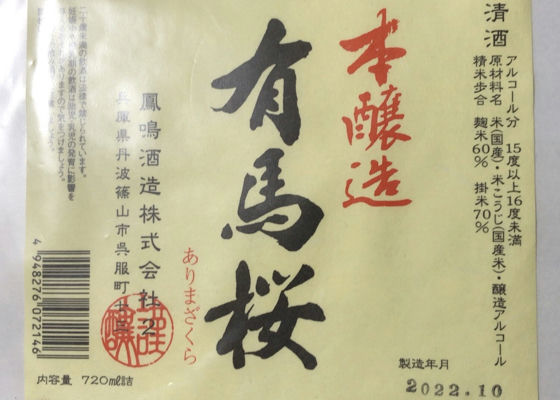 清酒
アルコール分 15度以上16度未満
原材料名 米(国産)・米こうじ(国産米)・醸造アルコール
精米歩合 麹米60% 掛米70%
本醸造
有馬桜
ありまざくら
鳳鳴酒造株式会社2
兵庫県丹波篠山市呉服町
二十歳未満の飲酒は法律で禁じられています。
妊娠中や授乳期の飲酒は胎児・乳児の発育に影響を
4 948276 072146
内容量 720ml詰
製造年月
2022.10